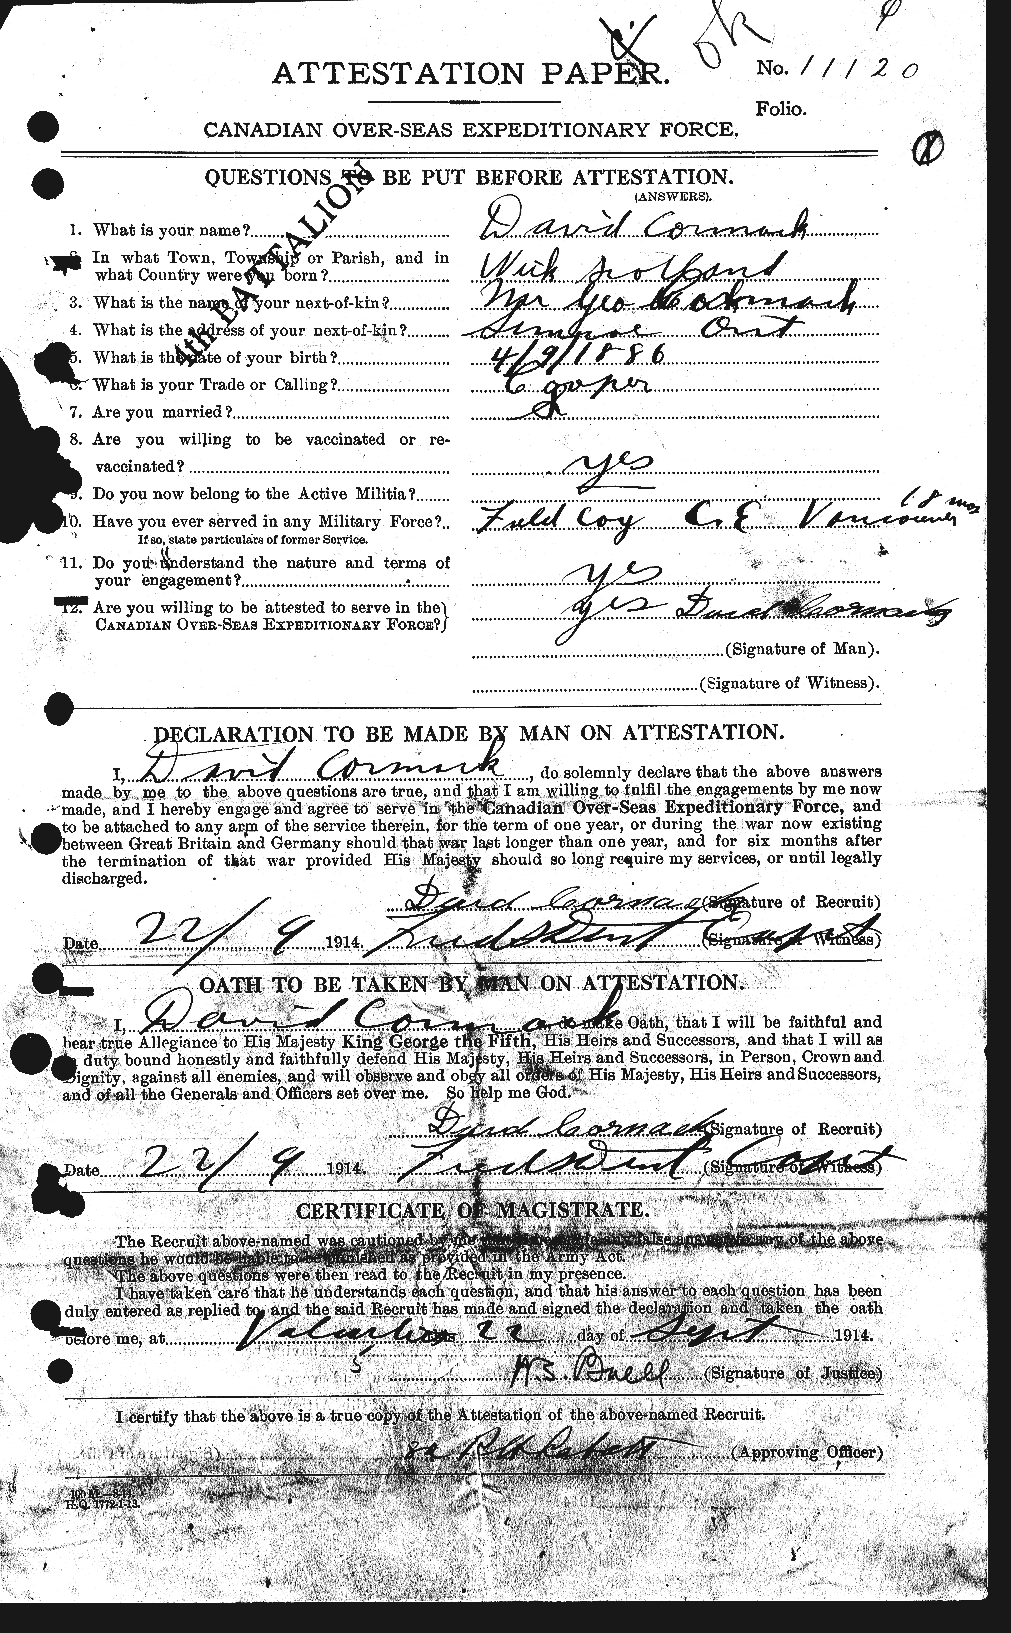 ok
ATTESTATION PAPER.
No. 11120
Folio.
CANADIAN OVER-SEAS EXPEDITIONARY FORCE.
4th BATTALION
QUESTIONS TO BE PUT BEFORE ATTESTATION.
(ANSWERS).
1. What is your name? David Cormack
2. In what Town, Township or Parish, and in
what Country were you born? Wick Scotland
3. What is the name of your next-of-kin? Mr Geo Cormack
4. What is the address of your next-of-kin? Simcoe Ont
5. What is the date of your birth? 4/9/1886
6. What is your Trade or Calling? Cooper
7. Are you married? S
8. Are you willing to be vaccinated or re-
vaccinated? yes
9. Do you now belong to the Active Militia?
10. Have you ever served in any Military Force? Field Coy C.E Vancouver 18 mos
If so, state particulars of former Service.
11. Do you understand the nature and terms of
your engagement? yes
12. Are you willing to be attested to serve in the
CANADIAN OVER-SEAS EXPEDITIONARY FORCE? yes David Cormack
(Signature of Man).
(Signature of Witness).
DECLARATION TO BE MADE BY MAN ON ATTESTATION.
I, David Cormack, do solemnly declare that the above answers
made by me to the above questions are true, and that I am willing to fulfil the engagements by me now
made, and I hereby engage and agree to serve in the Canadian Over-Seas Expeditionary Force, and
to be attached to any arm of the service therein, for the term of one year, or during the war now existing
between Great Britain and Germany should that war last longer than one year, and for six months after
the termination of that war provided His Majesty should so long require my services, or until legally
discharged.
David Cormack (Signature of Recruit)
Date 22/9 1914. Fred S Dent Capt (Signature of Witness)
OATH TO BE TAKEN BY MAN ON ATTESTATION.
I, David Cormack do make Oath, that I will be faithful and
bear true Allegiance to His Majesty King George the Fifth, His Heirs and Successors, and that I will as
in duty bound honestly and faithfully defend His Majesty, His Heirs and Successors, in Person, Crown and
Dignity, against all enemies, and will observe and obey all orders of His Majesty, His Heirs and Successors,
and of all the Generals and Officers set over me. So help me God.
David Cormack (Signature of Recruit)
Date 22/9 1914. Fred S Dent Capt (Signature of Witness)
CERTIFICATE OF MAGISTRATE.
The Recruit above-named was cautioned by me that if he made any false answer to any of the above
questions he would be liable to be punished as provided in the Army Act.
The above questions were then read to the Recruit in my presence.
I have taken care that he understands each question, and that his answer to each question has been
duly entered as replied to, and the said Recruit has made and signed the declaration and taken the oath
before me, at Valcartier this 22 day of Sept 1914.
W.S. Buell (Signature of Justice)
I certify that the above is a true copy of the Attestation of the above-named Recruit.
(Approving Officer)
100 M.—8-14.
H.Q. 1772-1-13.